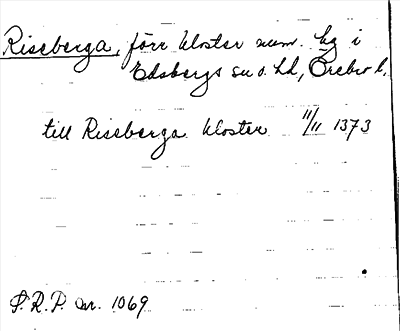 Riseberga, förr kloster num. lg i
Edsbergs sn o. hd, Örebro l.
till Risseberga kloster 11/11 1373
S.R.P. nr. 1069